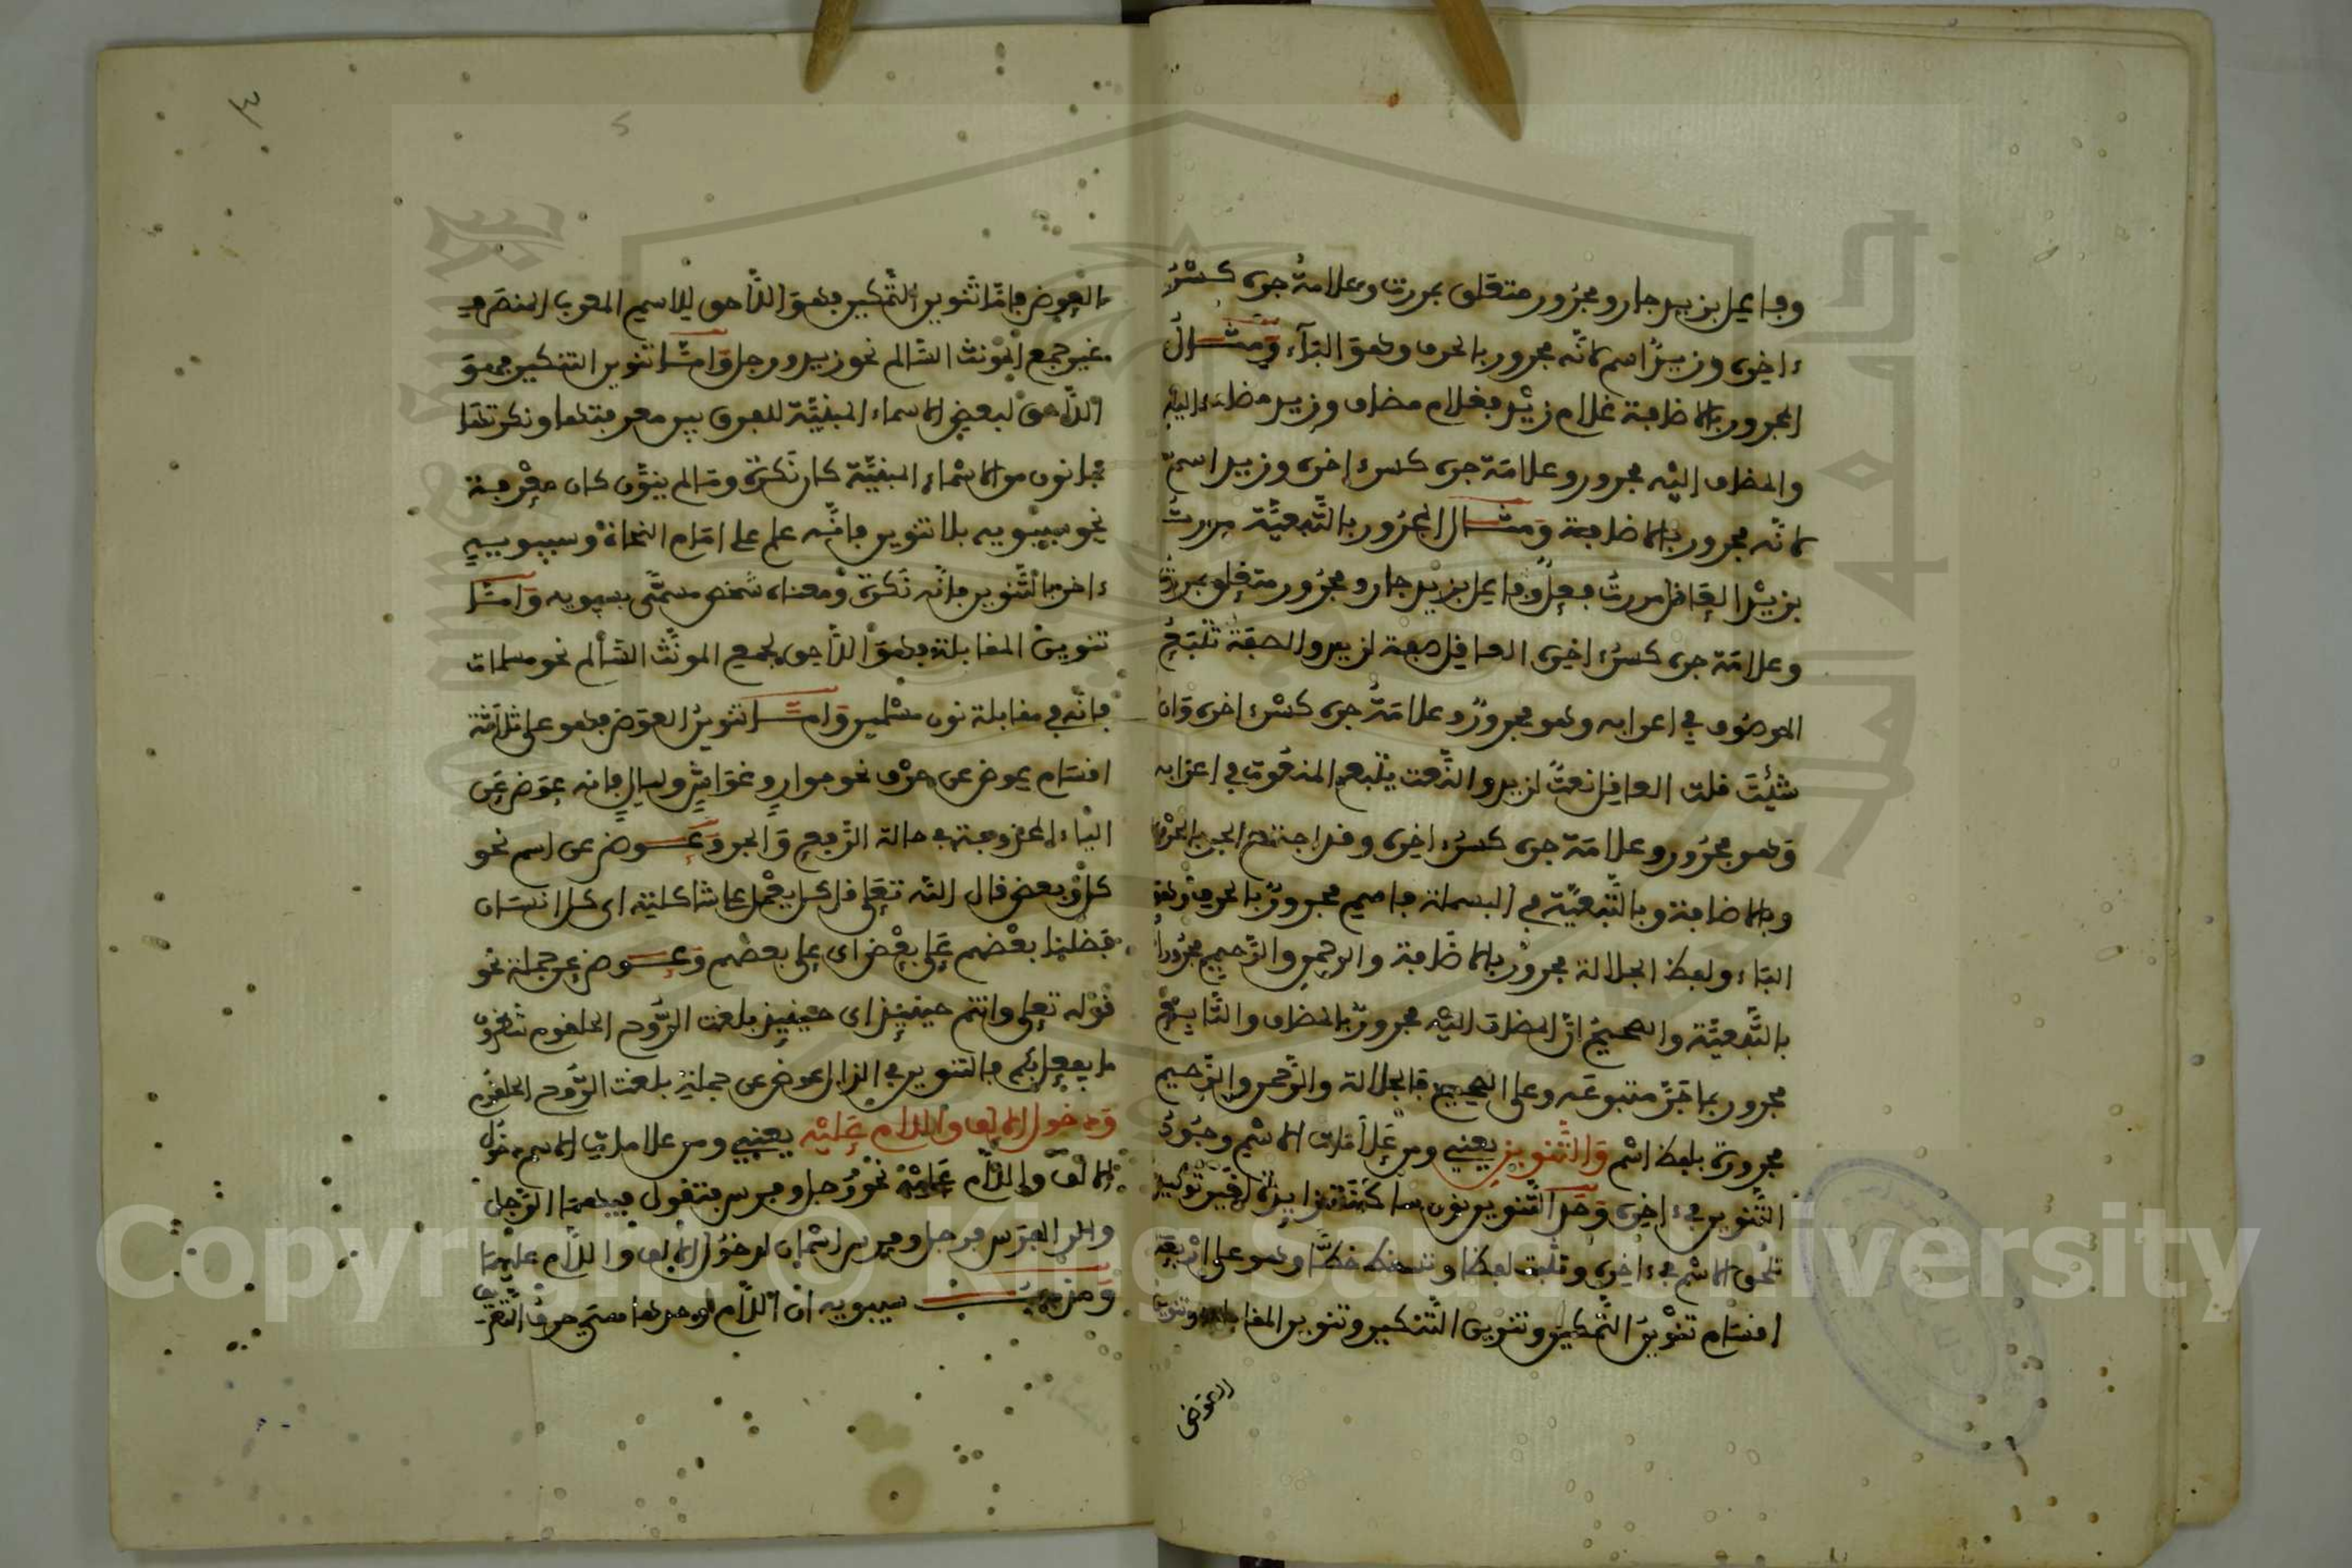 وفاعل بزيد جار ومجرور متعلق بمررت وعلامة جره كسرة
ءاخره وزيد اسم لانه مجرور بالحرف وهو الباء ومثال
المجرور بالاضافة غلام زيد فغلام مضاف وزيد مضاف اليه
والمضاف اليه مجرور وعلامة جره كسرة ءاخره وزيد اسم
لانه مجرور بالاضافة ومثال المجرور بالتبعية مررت
بزيد العاقل مررت فعل وفاعل بزيد جار ومجرور متعلق بمررت
وعلامة جره كسرة اخره العاقل صفة لزيد والصفة تتبع
الموصوف في اعرابه وهو مجرور وعلامة جره كسرة اخره وان
شئت قلت العاقل نعت لزيد والنعت يتبع المنعوت في اعرابه
وهو مجرور وعلامة جره كسرة اخره وقد اجتمع الجر بالحرف
وبالاضافة وبالتبعية في البسملة فاسم مجرور بالحرف وهو
الباء ولفظ الجلالة مجرور بالاضافة والرحمن والرحيم مجروران
بالتبعية والصحيح ان المضاف اليه مجرور بالمضاف والتابع
مجرور بما جر متبوعه وعلى الصحيح فالجلالة والرحمن والرحيم
مجرورة بلفظ اسم والتنوين يعني ومن علامات الاسم وجود
التنوين في ءاخره وحد التنوين نون ساكنة زايدة لغير توكيد
تلحق الاسم في ءاخره وتثبت لفظا وتسقط خطا وهو على اربعة
اقسام تنوين التمكين وتنوين التنكير وتنوين المقابلة وتنوين
العوض
٣
العوض فاما تنوين التمكين فهو اللاحق للاسم المعرب المنصرف
غير جمع المونث السالم نحو زيد ورجل واما تنوين التنكير فهو
اللاحق لبعض الاسماء المبنية للفرق بين معرفتها ونكرتها
فما نون من الاسماء المبنية كان نكرة وما لم ينون كان معرفة
نحو سيبويه بلا تنوين فانه علم على امام النحاة وسيبويه
ءاخر بالتنوين فانه نكرة ومعناه شخص مسمى بسيبويه واما
تنوين المقابلة فهو اللاحق لجمع المونث السالم نحو مسلمات
فانه في مقابلة نون مسلمين واما تنوين العوض فهو على ثلاثة
اقسام عوض عن حرف نحو جوار وغواش وليال فانه عوض عن
الياء المحذوفة في حالة الرفع والجر وعوض عن اسم نحو
كل وبعض قال الله تعلى قل كل يعمل على شاكلته اي كل انسان
فضلنا بعضهم على بعض اي على بعضهم وعوض عن جملة نحو
قوله تعلى وانتم حينيذ اي حينيذ بلغت الروح الحلقوم تنظرون
ما يفعل بكم فالتنوين في الذال عوض عن جملة بلغت الروح الحلقوم
ودخول الالف واللام عليه يعني ومن علامات الاسم دخول
الالف واللام عليه نحو رجل وفرس فتقول فيهما الرجل
والفرس فرجل وفرس اسمان لدخول الالف واللام عليهما
ومذهب سيبويه ان اللام وحدها هي حرف التعريف
Copyright © King Saud University